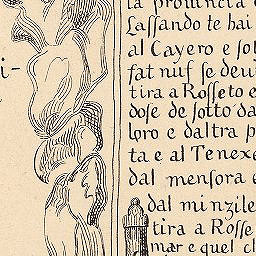 la prouincia
Lassando te hai
al Cayero e sol
fat nuf se deui
tira a Rosseto e
dose de sotto da
loro e daltra p
ta e al Tenexe
dal mensora e
dal minzile
tira a Rosse
mar e quel cl
i-